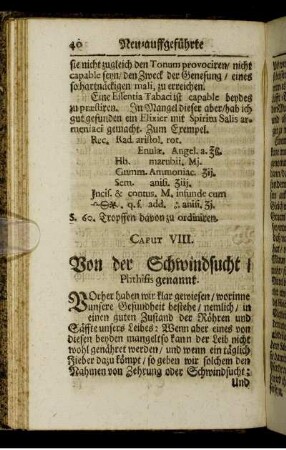 40 Neu-auffgeführte
sie nicht zugleich den Tonum provociren/ nicht
capable seyn/ den Zweck der Genesung / eines
so hartnäckigen mali, zu erreichen.
Eine Essentia Tabaci ist capable beydes
zu præstiren. In Mangel dieser aber/hab ich
gut gefunden ein Elixier mit Spiritu Salis ar-
meniaci gemacht. Zum Exempel.
Rec. Rad. aristol. rot.
Enulæ. Angel. a. ℥ß.
Hb. marrubii, Mj.
Gumm. Ammoniac. ʒij.
Sem. anisi, ʒiij.
Incis. & contus. M. infunde cum
q. s. add. anisi, ʒj.
S. 60. Tropffen davon zu ordiniren.
CAPUT VIII.
Von der Schwindsucht /
Phthisis genannt.
VOrher haben wir klar gewiesen/ worinne
unsere Gesundheit bestehe/ nemlich/ in
einen guten Zustand der Röhren und
Säffte unsers Leibes: Wenn aber eines von
diesen beyden mangelt so kann der Leib nicht
wohl genähret werden/ und wenn ein täglich
Fieber dazu kömpt/ so geben wir solchem den
Nahmen von Zehrung oder Schwindsucht:
Und